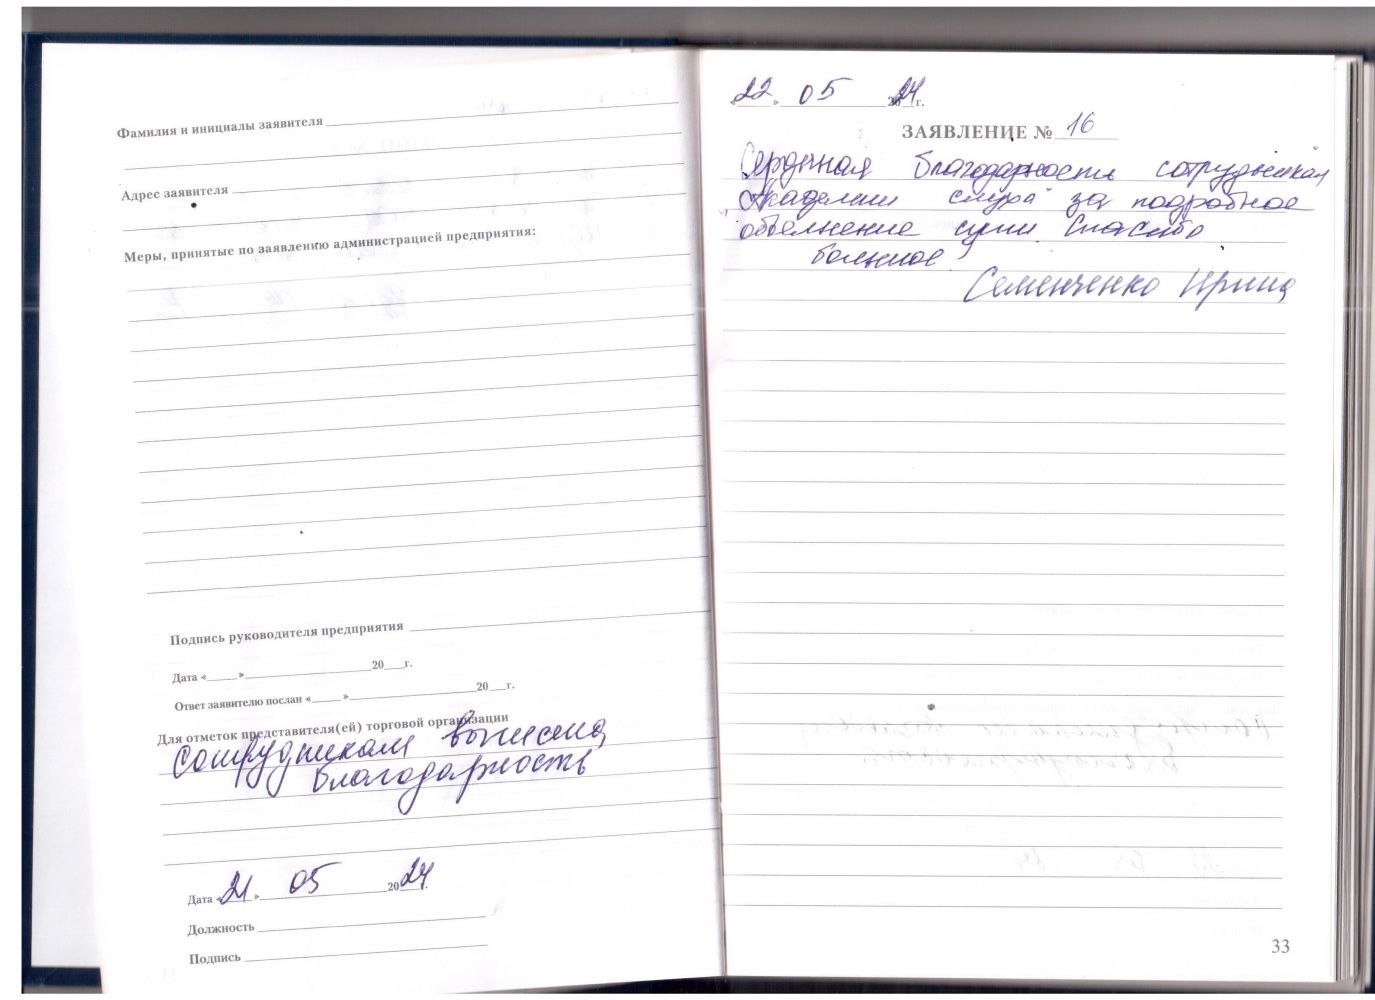 Фамилия и инициалы заявителя
Адрес заявителя
Меры, принятые по заявлению администрацией предприятия:
Подпись руководителя предприятия
Дата «____» ____ 20__г.
Ответ заявителю послан «____» ____ 20__г.
Для отметок представителя(ей) торговой организации
Сотрудникам вынесена
благодарность
Дата «21» 05 2024г.
Должность
Подпись
«22» 05 2024г.
ЗАЯВЛЕНИЕ № 16
Сердечная благодарность сотрудникам
"Академии слуха" за подробное
объяснение сути Спасибо
большое
Семенченко Ирина
33